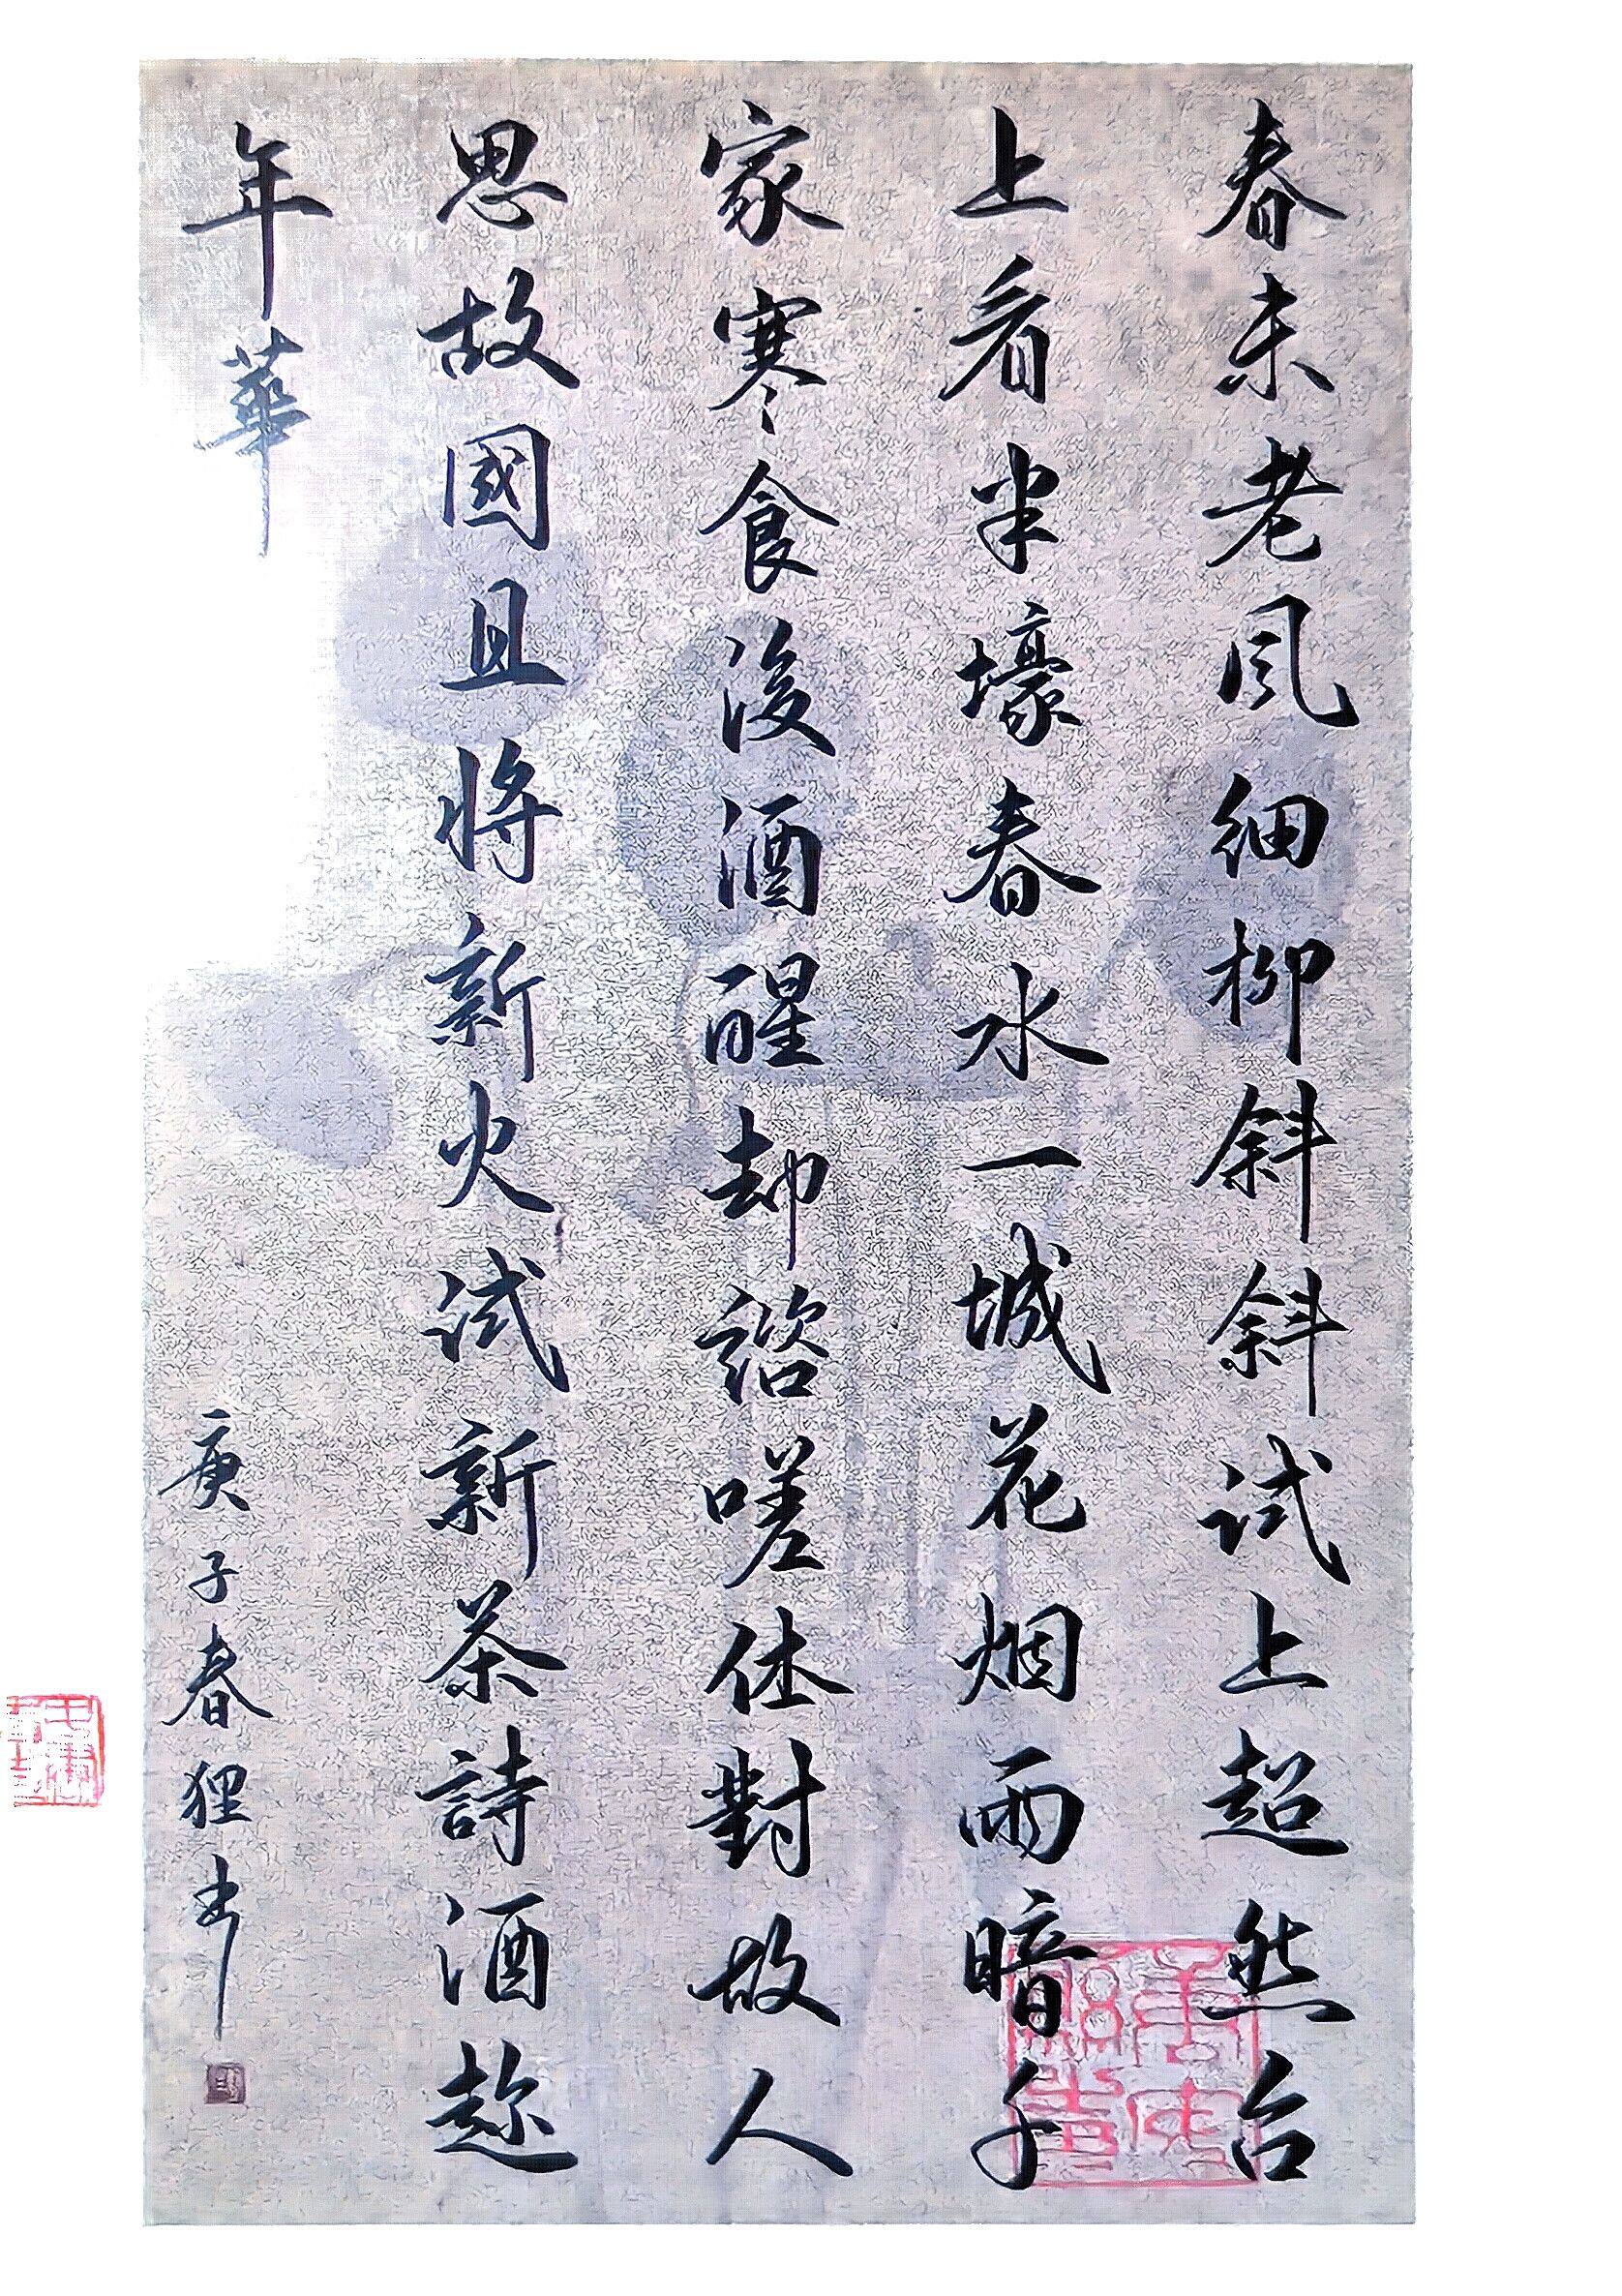 春未老风细柳斜斜试上超然台
上看半壕春水一城花烟雨暗千
家寒食後酒醒却諮嗟休對故人
思故國且将新火试新茶詩酒趂
年華
庚子春狸书